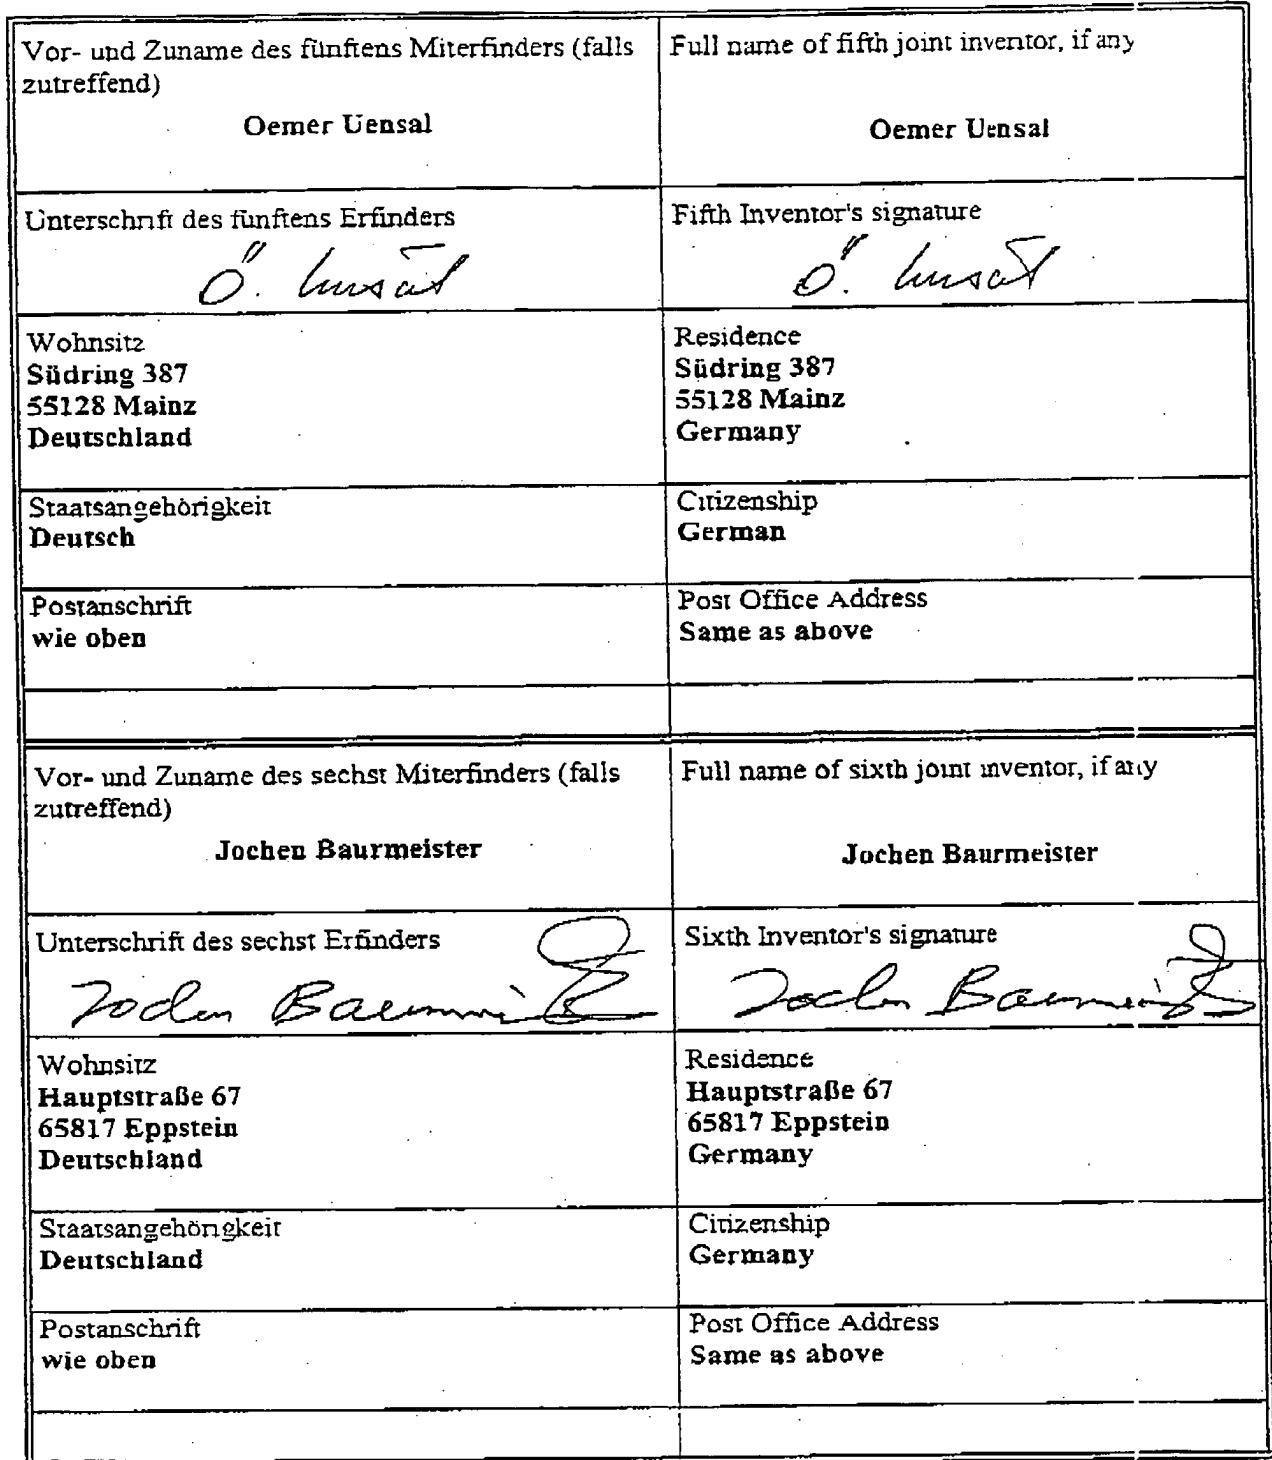 Vor- und Zuname des fünftens Miterfinders (falls
zutreffend)
Oemer Uensal
Full name of fifth joint inventor, if any
Oemer Uensal
Unterschrift des fünftens Erfinders
Ö. Unsal
Fifth Inventor's signature
Ö. Unsal
Wohnsitz
Südring 387
55128 Mainz
Deutschland
Residence
Südring 387
55128 Mainz
Germany
Staatsangehörigkeit
Deutsch
Citizenship
German
Postanschrift
wie oben
Post Office Address
Same as above
Vor- und Zuname des sechst Miterfinders (falls
zutreffend)
Jochen Baurmeister
Full name of sixth joint inventor, if any
Jochen Baurmeister
Unterschrift des sechst Erfinders
Jochen Baurmeister
Sixth Inventor's signature
Jochen Baurmeister
Wohnsitz
Hauptstraße 67
65817 Eppstein
Deutschland
Residence
Hauptstraße 67
65817 Eppstein
Germany
Staatsangehörigkeit
Deutschland
Citizenship
Germany
Postanschrift
wie oben
Post Office Address
Same as above